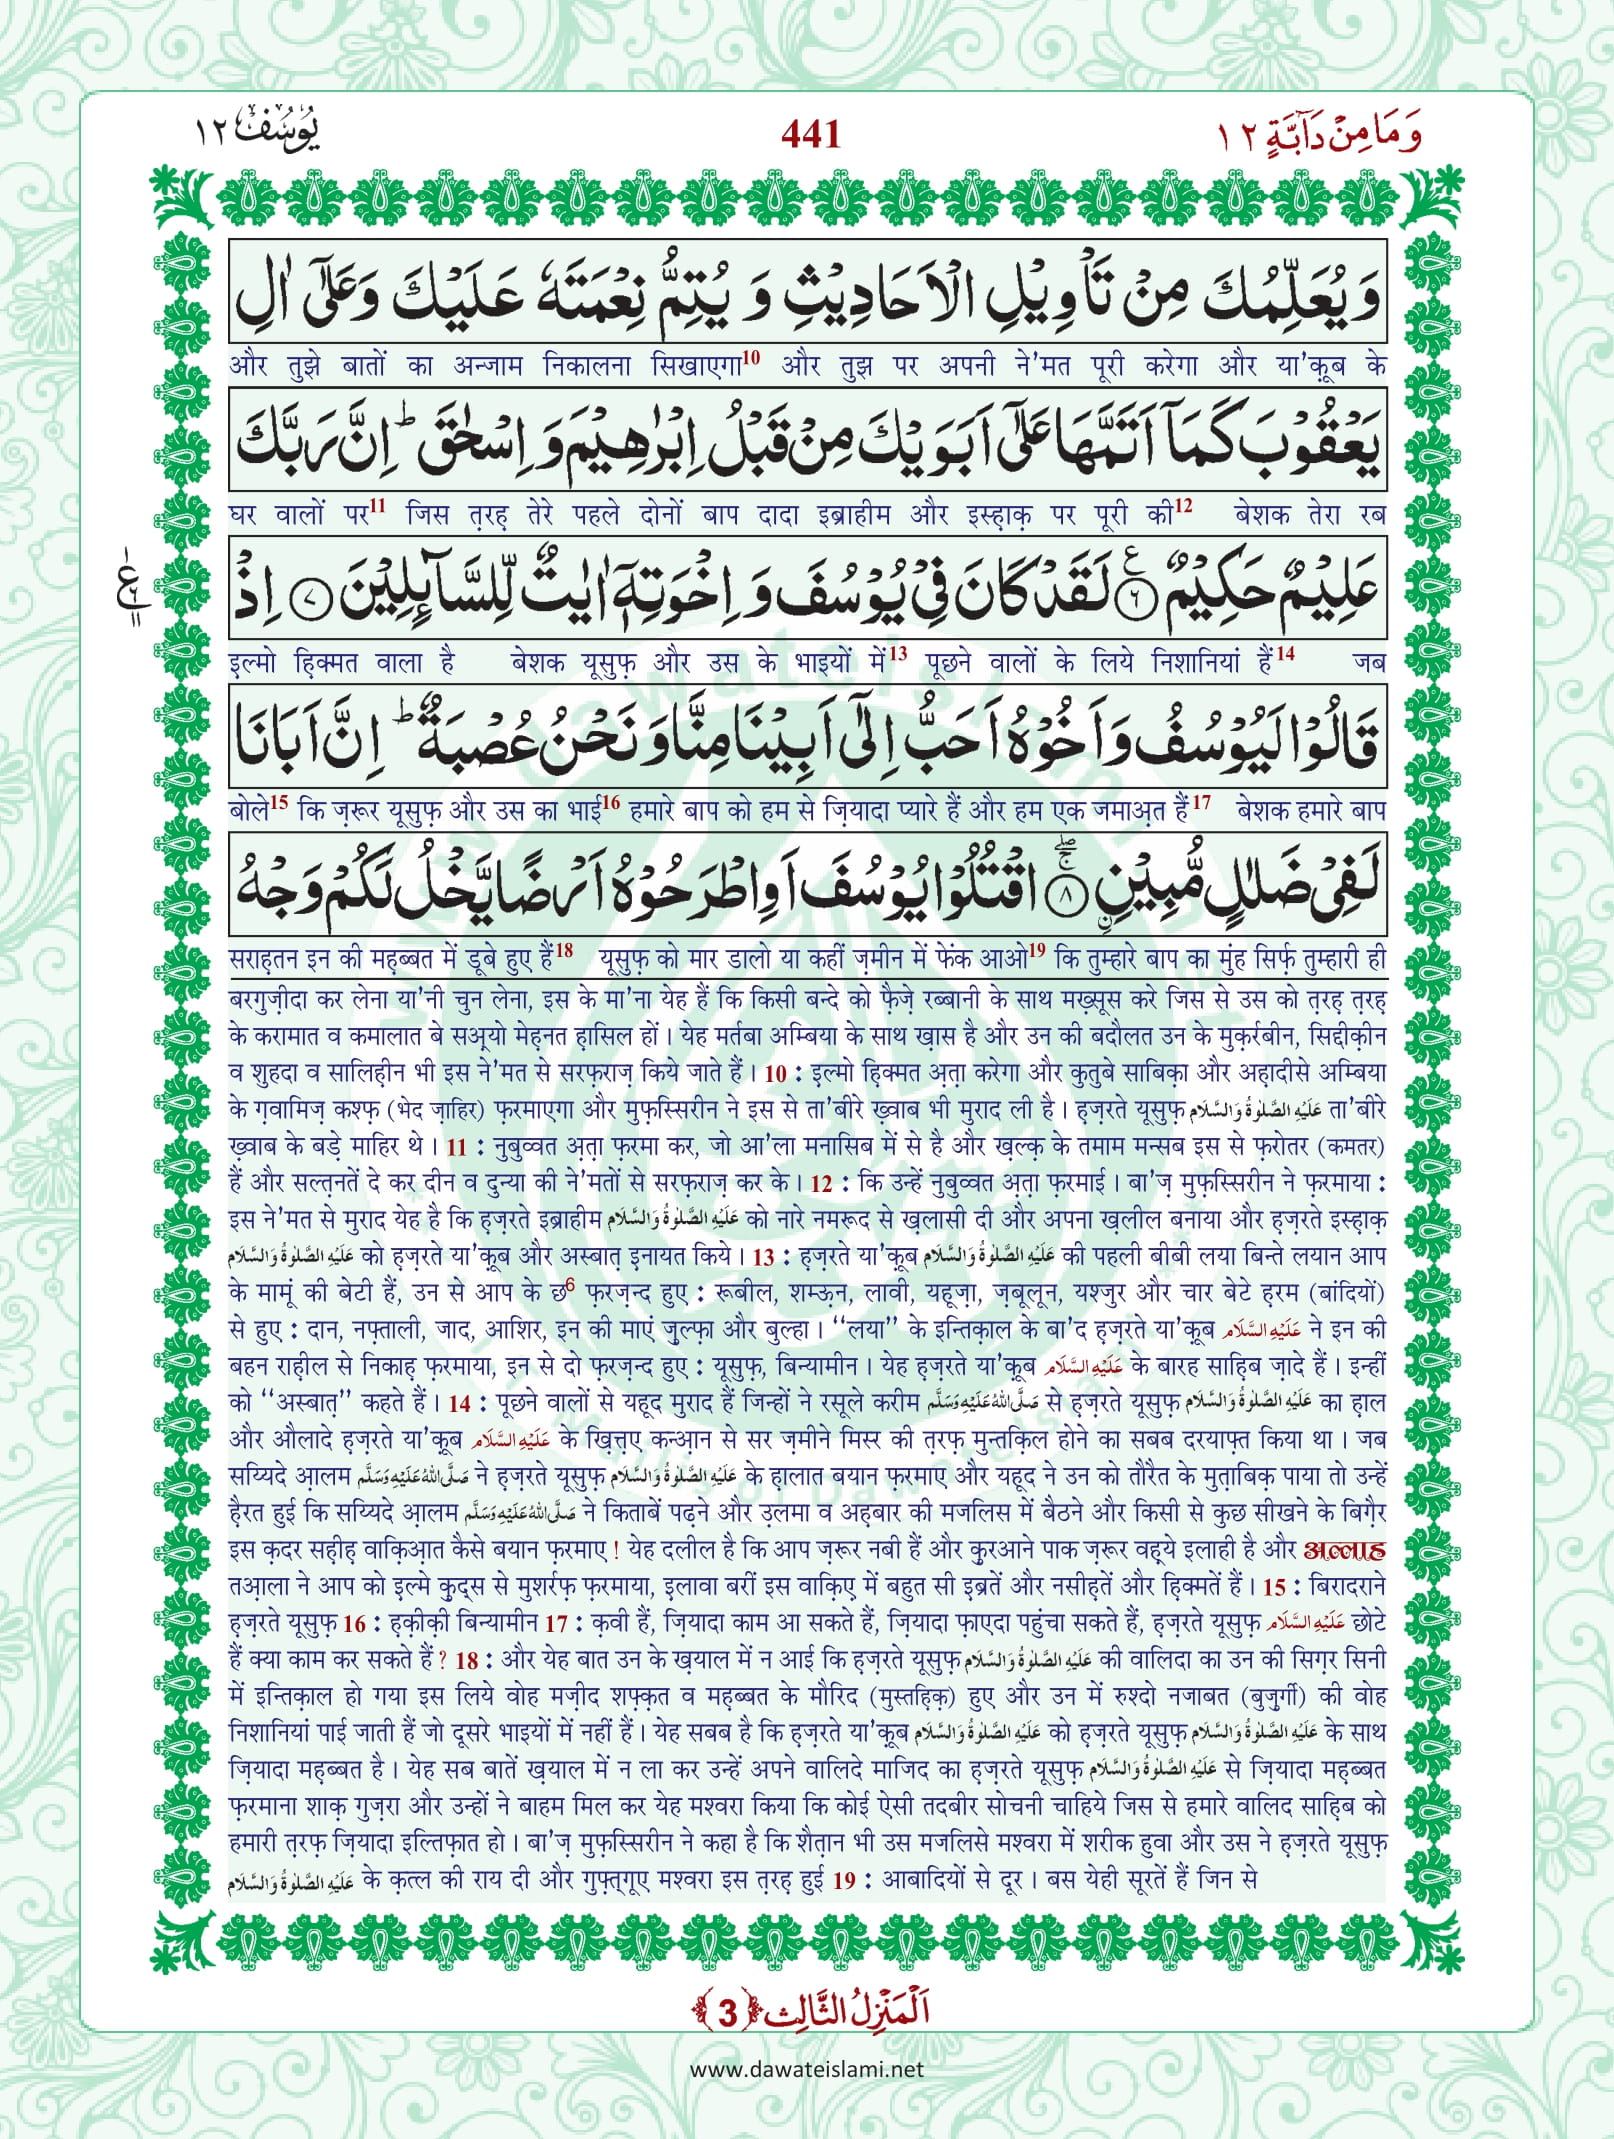 وَمَا مِنْ دَآبَّةٍ ١٢
441
يُوْسُف ١٢
وَ يُعَلِّمُكَ مِنْ تَاْوِيْلِ الْاَحَادِيْثِ وَ يُتِمُّ نِعْمَتَهٗ عَلَيْكَ وَ عَلٰۤى اٰلِ
और तुझे बातों का अन्जाम निकालना सिखाएगा10 और तुझ पर अपनी ने'मत पूरी करेगा और या'क़ूब के
يَعْقُوْبَ كَمَاۤ اَتَمَّهَا عَلٰۤى اَبَوَيْكَ مِنْ قَبْلُ اِبْرٰهِيْمَ وَ اِسْحٰقَ ؕ اِنَّ رَبَّكَ
घर वालों पर11 जिस त़रह़ तेरे पहले दोनों बाप दादा इब्राहीम और इस्ह़ाक़ पर पूरी की12 बेशक तेरा रब
عَلِيْمٌ حَكِيْمٌ ۠ ﴿٦﴾ لَقَدْ كَانَ فِيْ يُوْسُفَ وَ اِخْوَتِهٖۤ اٰيٰتٌ لِّلسَّآىِٕلِيْنَ ﴿٧﴾ اِذْ
इल्मो ह़िक्मत वाला है बेशक यूसुफ़ और उस के भाइयों में13 पूछने वालों के लिये निशानियां हैं14 जब
قَالُوْا لَيُوْسُفُ وَ اَخُوْهُ اَحَبُّ اِلٰۤى اَبِيْنَا مِنَّا وَ نَحْنُ عُصْبَةٌ ؕ اِنَّ اَبَانَا
बोले15 कि ज़रूर यूसुफ़ और उस का भाई16 हमारे बाप को हम से ज़ियादा प्यारे हैं और हम एक जमाअ़त हैं17 बेशक हमारे बाप
لَفِيْ ضَلٰلٍ مُّبِيْنِ ﴿٨﴾ اقْتُلُوْا يُوْسُفَ اَوِ اطْرَحُوْهُ اَرْضًا يَّخْلُ لَكُمْ وَجْهُ
सराह़तन इन की मह़ब्बत में डूबे हुए हैं18 यूसुफ़ को मार डालो या कहीं ज़मीन में फेंक आओ19 कि तुम्हारे बाप का मुंह सिर्फ़ तुम्हारी ही
बरगुज़ीदा कर लेना या'नी चुन लेना, इस के मा'ना येह हैं कि किसी बन्दे को फ़ैज़े रब्बानी के साथ मख़्सूस करे जिस से उस को त़रह़ त़रह़
के करामात व कमालात बे सअ़्यो मेह़नत ह़ासिल हों। येह मर्तबा अम्बिया के साथ ख़ास है और उन की बदौलत उन के मुक़र्रबीन, सिद्दीक़ीन
व शुहदा व सालिह़ीन भी इस ने'मत से सरफ़राज़ किये जाते हैं। 10 : इल्मो ह़िक्मत अ़त़ा करेगा और कुतुबे साबिक़ा और अह़ादीसे अम्बिया
के ग़वामिज़ कश्फ़ (भेद ज़ाहिर) फ़रमाएगा और मुफ़स्सिरीन ने इस से ता'बीरे ख़्वाब भी मुराद ली है। ह़ज़रते यूसुफ़ عَلَيْهِ الصَّلٰوةُ وَالسَّلَام ता'बीरे
ख़्वाब के बड़े माहिर थे। 11 : नुबुव्वत अ़त़ा फ़रमा कर, जो आ'ला मनासिब में से है और ख़ल्क़ के तमाम मन्सब इस से फ़रोतर (कमतर)
हैं और सल्त़नतें दे कर दीन व दुन्या की ने'मतों से सरफ़राज़ कर के। 12 : कि उन्हें नुबुव्वत अ़त़ा फ़रमाई। बा'ज़ मुफ़स्सिरीन ने फ़रमाया :
इस ने'मत से मुराद येह है कि ह़ज़रते इब्राहीम عَلَيْهِ الصَّلٰوةُ وَالسَّلَام को नारे नमरूद से ख़लासी दी और अपना ख़लील बनाया और ह़ज़रते इस्ह़ाक़
عَلَيْهِ الصَّلٰوةُ وَالسَّلَام को ह़ज़रते या'क़ूब और अस्बात़ इनायत किये। 13 : ह़ज़रते या'क़ूब عَلَيْهِ الصَّلٰوةُ وَالسَّلَام की पहली बीबी लया बिन्ते लयान आप
के मामूं की बेटी हैं, उन से आप के छ6 फ़रज़न्द हुए : रूबील, शम्ऊ़न, लावी, यहूज़ा, ज़बूलून, यश्जुर और चार बेटे ह़रम (बांदियों)
से हुए : दान, नफ़्ताली, जाद, आशिर, इन की माएं ज़ुल्फ़ा और बुल्हा। ''लया'' के इन्तिक़ाल के बा'द ह़ज़रते या'क़ूब عَلَيْهِ السَّلَام ने इन की
बहन राह़ील से निकाह़ फ़रमाया, इन से दो फ़रज़न्द हुए : यूसुफ़, बिन्यामीन। येह ह़ज़रते या'क़ूब عَلَيْهِ السَّلَام के बारह साह़िब ज़ादे हैं। इन्हीं
को ''अस्बात़'' कहते हैं। 14 : पूछने वालों से यहूद मुराद हैं जिन्हों ने रसूले करीम صَلَّى اللّٰهُ عَلَيْهِ وَسَلَّم से ह़ज़रते यूसुफ़ عَلَيْهِ الصَّلٰوةُ وَالسَّلَام का ह़ाल
और औलादे ह़ज़रते या'क़ूब عَلَيْهِ السَّلَام के ख़ित़्त़ए कन्आ़न से सर ज़मीने मिस्र की त़रफ़ मुन्तक़िल होने का सबब दरयाफ़्त किया था। जब
सय्यिदे आ़लम صَلَّى اللّٰهُ عَلَيْهِ وَسَلَّم ने ह़ज़रते यूसुफ़ عَلَيْهِ الصَّلٰوةُ وَالسَّلَام के ह़ालात बयान फ़रमाए और यहूद ने उन को तौरैत के मुत़ाबिक़ पाया तो उन्हें
ह़ैरत हुई कि सय्यिदे आ़लम صَلَّى اللّٰهُ عَلَيْهِ وَسَلَّم ने किताबें पढ़ने और उ़लमा व अह़बार की मजलिस में बैठने और किसी से कुछ सीखने के बिग़ैर
इस क़दर सह़ीह़ वाक़िआ़त कैसे बयान फ़रमाए ! येह दलील है कि आप ज़रूर नबी हैं और क़ुरआने पाक ज़रूर वह़्ये इलाही है और अल्लाह
तआ़ला ने आप को इ़ल्मे क़ुद्स से मुशर्रफ़ फ़रमाया, इ़लावा बरीं इस वाक़िए में बहुत सी इ़ब्रतें और नसीह़तें और ह़िक्मतें हैं। 15 : बिरादराने
ह़ज़रते यूसुफ़ 16 : ह़क़ीक़ी बिन्यामीन 17 : क़वी हैं, ज़ियादा काम आ सकते हैं, ज़ियादा फ़ाएदा पहुंचा सकते हैं, ह़ज़रते यूसुफ़ عَلَيْهِ السَّلَام छोटे
हैं क्या काम कर सकते हैं ? 18 : और येह बात उन के ख़याल में न आई कि ह़ज़रते यूसुफ़ عَلَيْهِ الصَّلٰوةُ وَالسَّلَام की वालिदा का उन की सिग़र सिनी
में इन्तिक़ाल हो गया इस लिये वोह मज़ीद शफ़्क़त व मह़ब्बत के मौरिद (मुस्तह़िक़) हुए और उन में रुश्दो नजाबत (बुज़ुर्गी) की वोह
निशानियां पाई जाती हैं जो दूसरे भाइयों में नहीं हैं। येह सबब है कि ह़ज़रते या'क़ूब عَلَيْهِ الصَّلٰوةُ وَالسَّلَام को ह़ज़रते यूसुफ़ عَلَيْهِ الصَّلٰوةُ وَالسَّلَام के साथ
ज़ियादा मह़ब्बत है। येह सब बातें ख़याल में न ला कर उन्हें अपने वालिदे माजिद का ह़ज़रते यूसुफ़ عَلَيْهِ الصَّلٰوةُ وَالسَّلَام से ज़ियादा मह़ब्बत
फ़रमाना शाक़ गुज़रा और उन्हों ने बाहम मिल कर येह मश्वरा किया कि कोई ऐसी तदबीर सोचनी चाहिये जिस से हमारे वालिद साह़िब को
हमारी त़रफ़ ज़ियादा इल्तिफ़ात हो। बा'ज़ मुफ़स्सिरीन ने कहा है कि शैत़ान भी उस मजलिसे मश्वरा में शरीक हुवा और उस ने ह़ज़रते यूसुफ़
عَلَيْهِ الصَّلٰوةُ وَالسَّلَام के क़त्ल की राय दी और गुफ़्त्गूए मश्वरा इस त़रह़ हुई 19 : आबादियों से दूर। बस येही सूरतें हैं जिन से
اَلْمَنْزِلُ الثَّالِث ﴿3﴾
www.dawateislami.net